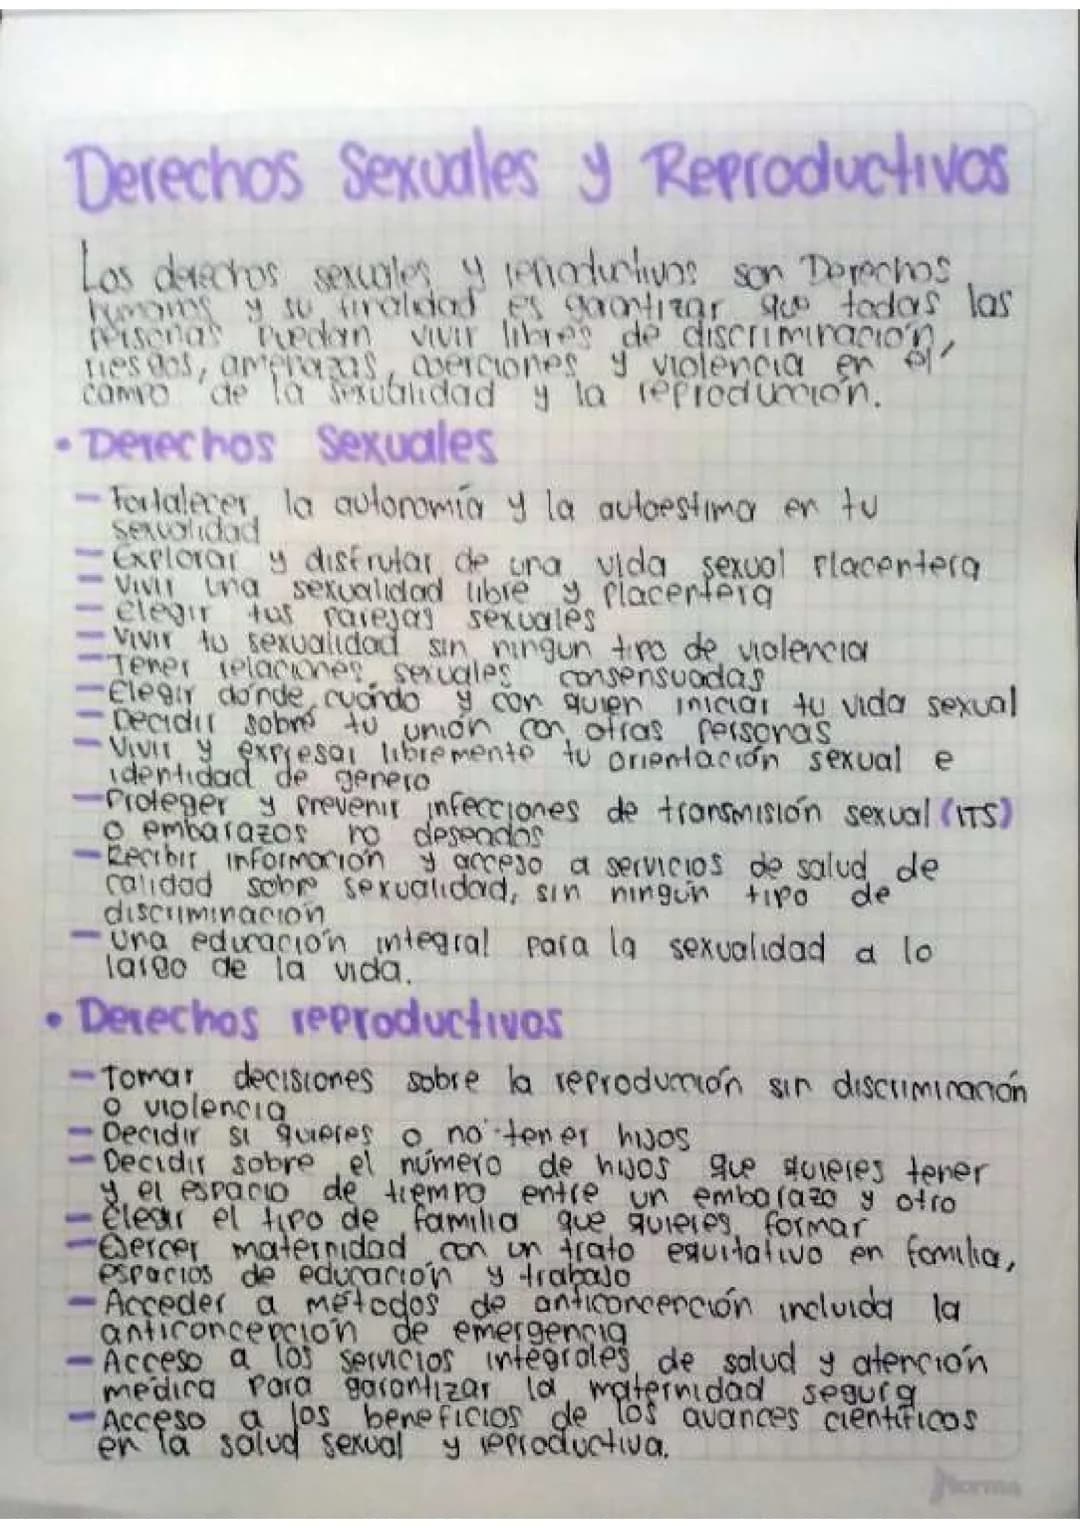 Derechos Sexuales y Reproductivos
Los derechos sexuales y reproductivos son Derechos
humanos y su finalidad es garantizar que todas las
personas puedan vivir libres de discriminación,
riesgos, amenazas, coerciones y violencia en el
campo de la sexualidad y la reproducción.
• Derechos Sexuales
- Fortalecer la autonomía y la autoestima en tu
sexualidad
- Explorar y disfrutar de una vida sexual placentera
- Vivir una sexualidad libre y placentera
- elegir tus parejas sexuales
- Vivir tu sexualidad sin ningun tipo de violencia
- Tener relaciones sexuales consensuadas
- Elegir dónde, cuándo y con quien iniciar tu vida sexual
- Decidir sobre tu unión con otras personas
- Vivir y expresar libremente tu orientación sexual e
identidad de genero
- Proteger y prevenir infecciones de transmisión sexual (ITS)
o embarazos no deseados
- Recibir información y acceso a servicios de salud de
calidad sobre sexualidad, sin ningún tipo de
discriminación
- una educación integral para la sexualidad a lo
largo de la vida.
• Derechos reproductivos
- Tomar decisiones sobre la reproducción sin discriminación
o violencia
- Decidir si quieres o no tener hijos
- Decidir sobre el número de hijos que quieres tener
y el espacio de tiempo entre un embarazo y otro
- Elegir el tipo de familia que quieres formar
- Ejercer maternidad con un trato equitativo en familia,
espacios de educación y trabajo
- Acceder a métodos de anticoncepción incluida la
anticoncepción de emergencia
- Acceso a los servicios integrales de salud y atención
médica para garantizar la maternidad segura
- Acceso a los beneficios de los avances científicos
en la salud sexual y reproductiva.
Norma